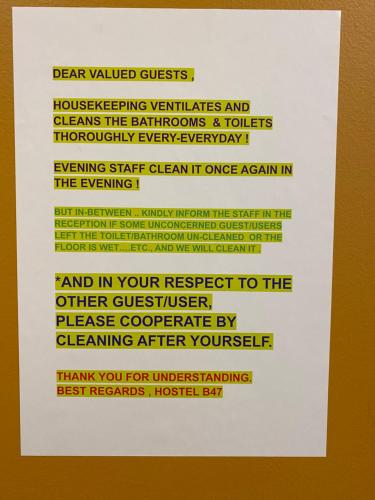 DEAR VALUED GUESTS ,
HOUSEKEEPING VENTILATES AND
CLEANS THE BATHROOMS & TOILETS
THOROUGHLY EVERY-EVERYDAY !
EVENING STAFF CLEAN IT ONCE AGAIN IN
THE EVENING !
BUT IN-BETWEEN .. KINDLY INFORM THE STAFF IN THE
RECEPTION IF SOME UNCONCERNED GUEST/USERS
LEFT THE TOILET/BATHROOM UN-CLEANED OR THE
FLOOR IS WET....ETC., AND WE WILL CLEAN IT .
*AND IN YOUR RESPECT TO THE
OTHER GUEST/USER,
PLEASE COOPERATE BY
CLEANING AFTER YOURSELF.
THANK YOU FOR UNDERSTANDING.
BEST REGARDS , HOSTEL B47